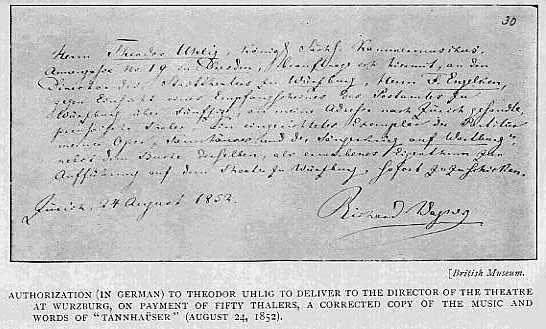 30
Herrn Theodor Uhlig, königl. Sächs. Kammermusikus,
No 19 in Dresden, beauftrage ich hiermit, an den
Director des Stadttheaters zu Würzburg Herrn F. Engelken,
gegen eines Empfangscheines des Postamtes zu
Würzburg über fünfzig, an meine Adresse nach Zürich gesendete,
preussische Thaler, ein eingerichtetes Exemplar der Partitur
meiner Oper, „Tannhäuser und der Sängerkrieg auf Wartburg",
nebst dem Buche derselben, als Eigenthum zur
Aufführung auf dem Theater zu Würzburg, sofort zuzuschicken.
Zürich, 24 August 1852.
Richard Wagner
[British Museum.
AUTHORIZATION (IN GERMAN) TO THEODOR UHLIG TO DELIVER TO THE DIRECTOR OF THE THEATRE
AT WURZBURG, ON PAYMENT OF FIFTY THALERS, A CORRECTED COPY OF THE MUSIC AND
WORDS OF "TANNHAÜSER" (AUGUST 24, 1852).